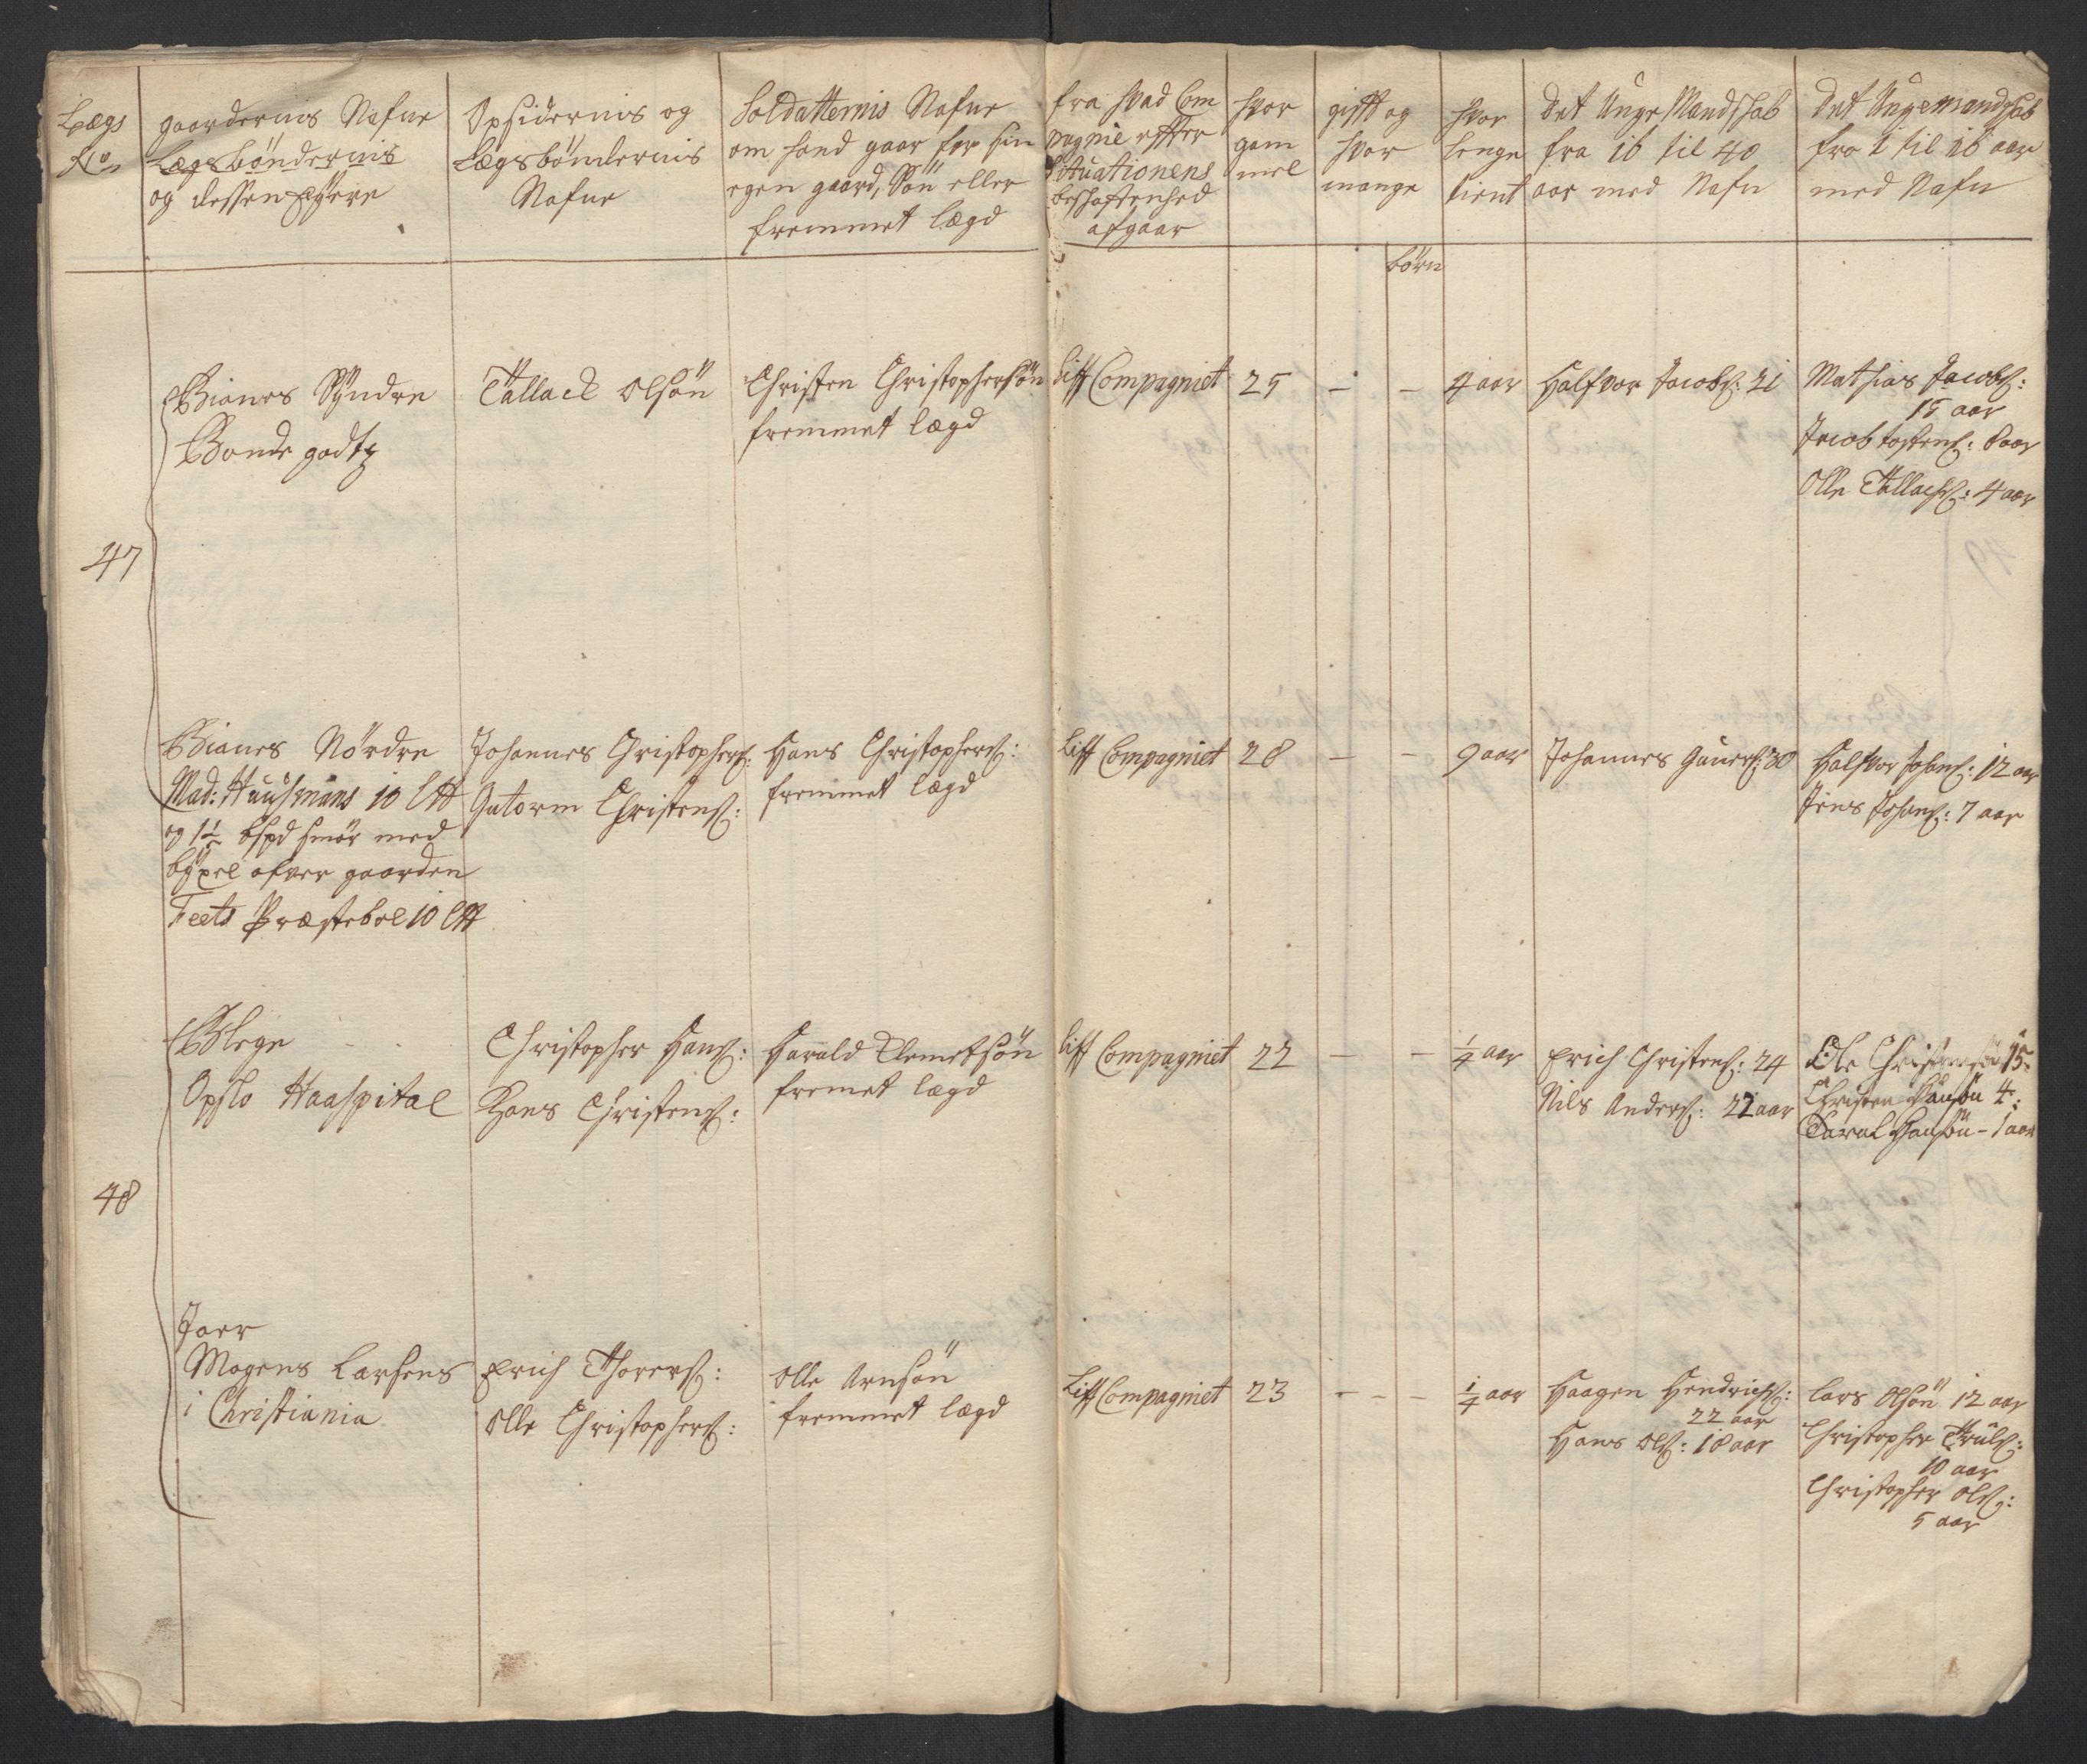 Lægs
No
gaardernis Nafne
Lægsbøndernis
og dessen Eyere
Opsidernis og
Lægsbøndernis
Nafne
Soldatternis Nafne
om hand gaar for sin
egen gaard, Søn eller
fremmet lægd
fra hvad Com
pagnie efter
Situationens
beschaffenhed
afgaar
hvor
gam
mel
gifft og
hvor
mange
børn
hvor
lenge
tient
Det Unge Mandskab
fra 16 til 40
aar med Nafn
Det Unge Mandskab
fra 1 til 16 aar
med Nafn
47
Bianes Syndre
Bonde godtz
Tallack Olsøn
Christen Christophersøn
fremmet lægd
Liff Compagniet
25
–
–
4 aar
Halfvor Jacobs: 21
Mathias Jacobs:
15 aar
Jacob tostens: 8 aar
Olle Tallachs: 4 aar
Bianes Nørdre
Mad: Huusmans 10 L tt
og 1½ bspd smør med
bÿxel ofver gaarden
Feets Præstebol 10 L tt
Johannes Christophers:
Gutorm Christens:
Hans Christophers:
fremmet lægd
Liff Compagniet
28
–
–
9 aar
Johannes Guners: 30
Halfvor Johans: 12 aar
Jens Johans: 7 aar
48
Blege
Opslo Haaspital
Christopher Hans:
Hans Christens:
Harald Clemetsøn
fremet lægd
Liff Compagniet
22
–
–
¼ aar
Erich Christens: 24
Nils Anders: 22 aar
Ole 15
Christen Hansøn 4:
Taral Hansøn – 1 aar
Jaer
Mogens Larsens
i Christiania
Erich Thorers:
Olle Christophers:
Olle Arnsøn
fremmet lægd
Liff Compagniet
23
– –
–
¼ aar
Haagen Hendrichs:
22 aar
Hans Ols: 18 aar
Lars Olsøn 12 aar
Christopher Truls:
10 aar
Christopher Ols:
5 aar